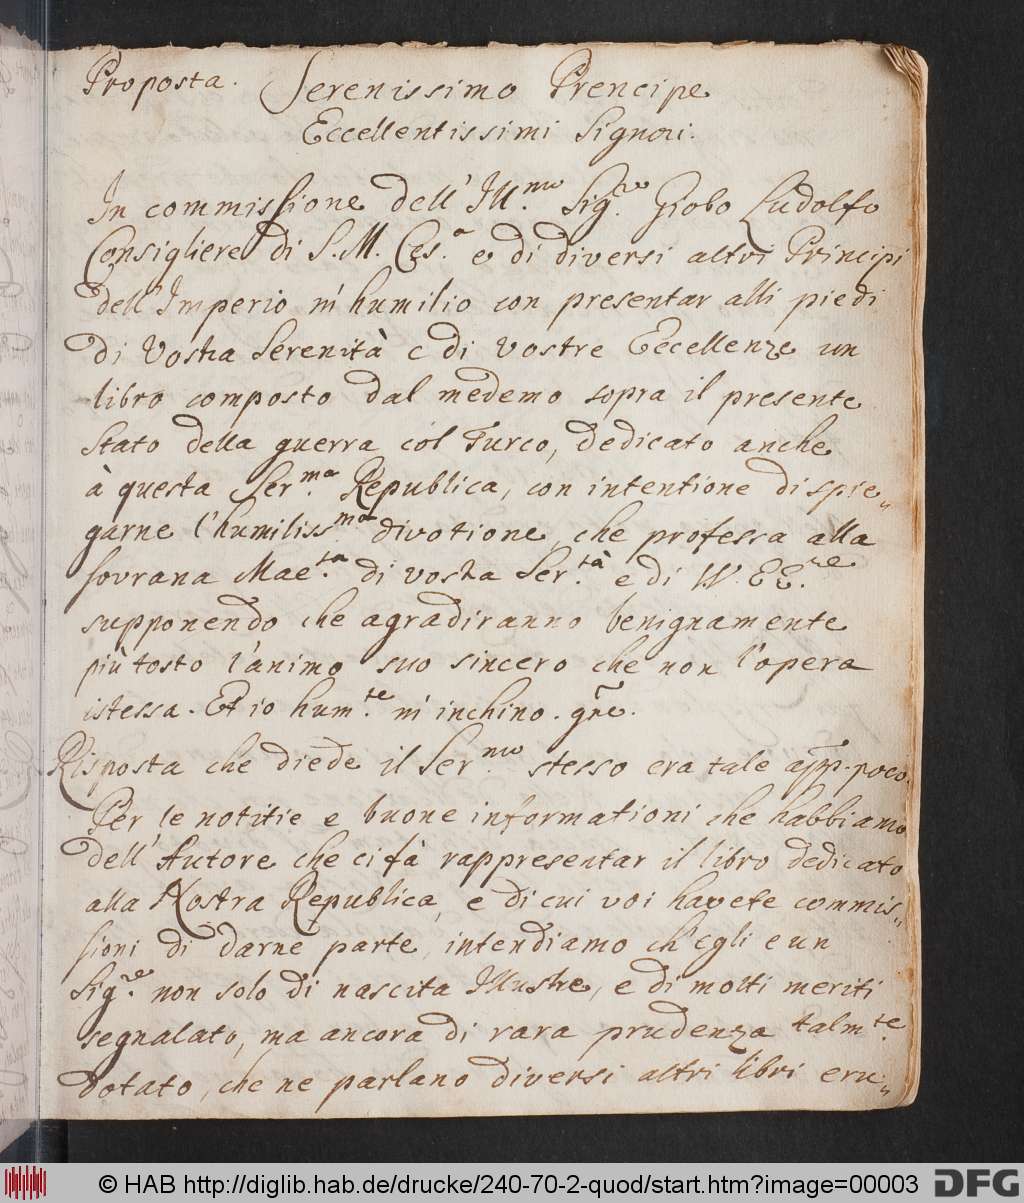 Proposta. Serenissimo Prencipe
Eccellentissimi Signori.
In commissione dell' Ill.mo Sig.re Giobo Ludolfo
Consigliere di S. M. Ces.a e di diversi altri Principi
dell' Imperio m' humilio con presentar alli piedi
di Vostra Serenità e di Vostre Eccellenze un
libro composto dal medemo sopra il presente
stato della guerra col Turco, dedicato anche
à questa Ser.ma Republica, con intentione di spie-
garne l'humiliss.ma divotione, che professa alla
sovrana Mae.ta di vostra Ser.tà e di VV. EE.ze
supponendo che agradiranno benignamente
più tosto l'animo suo sincero che non l'opera
istessa. Et io hum.te m' inchino.
Risposta che diede il Ser.mo stesso era tale app. poco.
Per le notitie e buone informationi che habbiamo
dell' Autore che ci fà rappresentar il libro dedicato
alla Nostra Republica, e di cui voi havete commis-
sioni di darne parte, intendiamo ch' egli e un
Sig.re non solo di nascita Illustre, e di molti meriti
segnalato, ma ancora di rara prudenza talm.te
dotato, che ne parlano diversi altri libri eru-
© HAB http://diglib.hab.de/drucke/240-70-2-quod/start.htm?image=00003
DFG